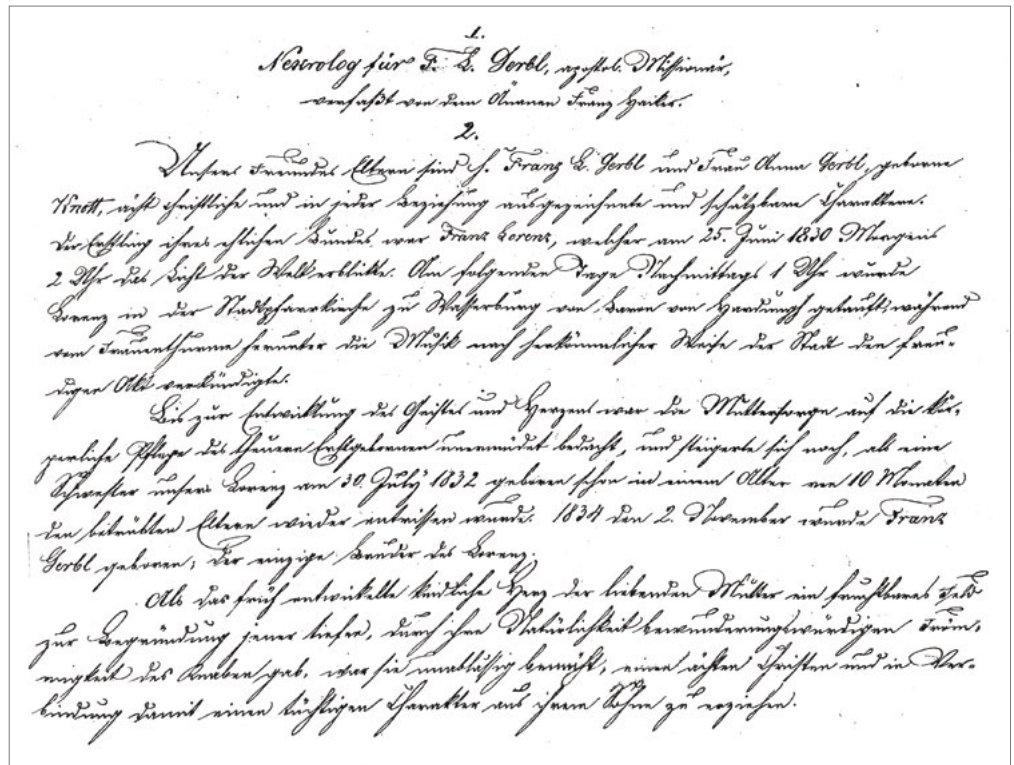 1.
Nekrolog für F. L. Gerbl, apostol. Missionär,
verfaßt von dem Franz Hailer.
2.
Unsers Freundes Eltern sind H. Franz L. Gerbl und Frau Anna Gerbl, geborne
Knott, ächt christliche und in jeder Beziehung ausgezeichnete und schätzbare Charaktere.
Der Erstling ihres ehlichen Bundes war Franz Lorenz, welcher am 25. Juni 1830 Morgens
2 Uhr das Licht der Welt erblickte. Am folgenden Tage Nachmittags 1 Uhr wurde
Lorenz in der Stadtpfarrkirche zu Wasserburg von Baron von getauft, während
vom Frauenthurme herunter die Musik nach herkömmlicher Weise der Stadt den freu-
digen Akt verkündigte.
Bis zur Entwicklung des Geistes und Herzens war die Muttersorge auf die kör-
perliche Pflege des theuern Erstgebornen unermüdet bedacht, und steigerte sich noch, als eine
Schwester unsers Lorenz am 30. July 1832 geboren schon in einem Alter von 10 Monaten
den betrübten Eltern wieder entrissen wurde. 1834 den 2. November wurde Franz
Gerbl geboren; der einzige Bruder des Lorenz.
Als das früh entwickelte kindliche Herz der liebenden Mutter ein fruchtbares Feld
zur Begründung jener tiefen, durch ihre Natürlichkeit bewunderungswürdigen Fröm-
migkeit des Knaben gab, war sie unablässig bemüht, einen ächten Christen und in Ver-
bindung damit einen tüchtigen Charakter aus ihrem Sohne zu erziehen.